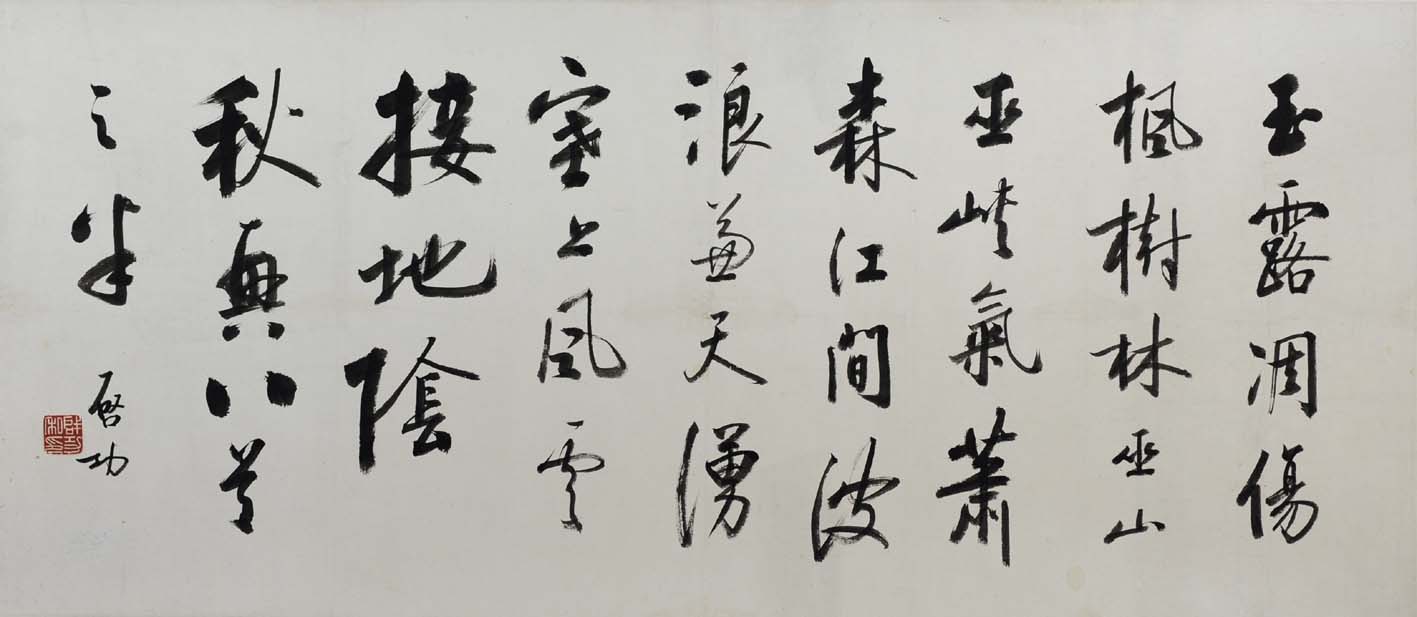 玉露凋傷
楓樹林巫山
巫峽氣蕭
森江間波
浪兼天湧
塞上風雲
接地陰
秋興八首
之半
啓功